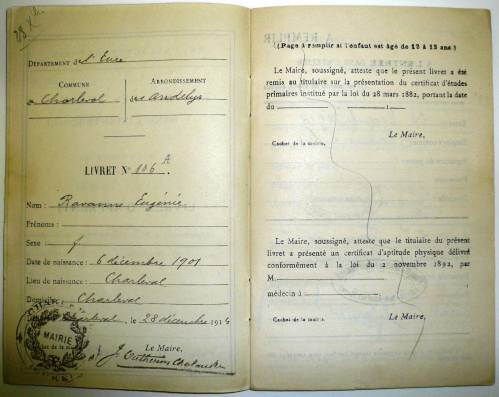 DÉPARTEMENT de l'Eure
COMMUNE ARRONDISSEMENT
Charleval des Andelys
LIVRET N° 186 A.
Nom : Ravanne Eugénie
Prénoms :
Sexe : f
Date de naissance : 6 décembre 1901
Lieu de naissance : Charleval
Domicile : Charleval
Charleval, le 28 décembre 1916
MAIRIE
Le Maire,
(Page à remplir si l'enfant est âgé de 12 à 13 ans)
Le Maire, soussigné, atteste que le présent livret a été
remis au titulaire sur la présentation du certificat d'études
primaires institué par la loi du 28 mars 1882, portant la date
du
Cachet de la mairie. Le Maire,
Le Maire, soussigné, atteste que le titulaire du présent
livret a présenté un certificat d'aptitude physique délivré
conformément à la loi du 2 novembre 1892, par
M.
médecin à
Cachet de la mairie. Le Maire,